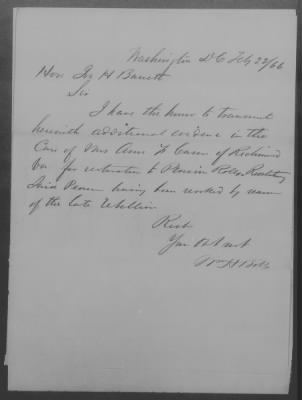 Washington D C Feby 22/66
Hon Jos H Barrett
Sir
I have the honor to transmit
herewith additional evidence in the
Case of Mrs Ann of Richmond
Va for restoration to Pension Rolls
having been revoked by reason
of the late Rebellion
Resp
Your Obt svt
Wm H